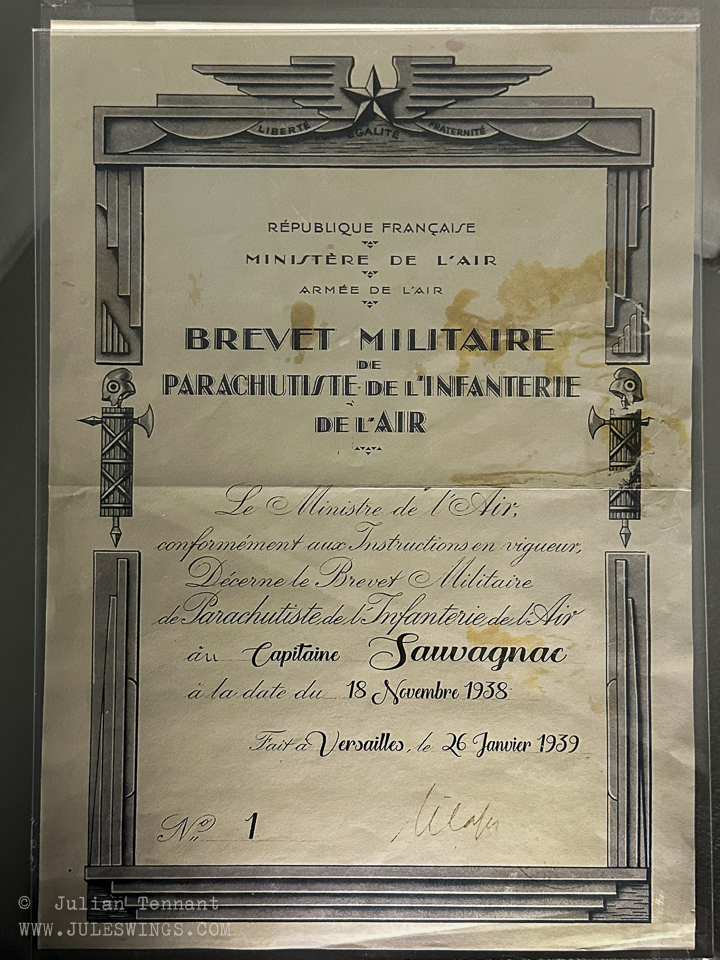 LIBERTÉ ÉGALITÉ FRATERNITÉ
RÉPUBLIQUE FRANÇAISE
MINISTÈRE DE L'AIR
ARMÉE DE L'AIR
BREVET MILITAIRE
DE
PARACHUTISTE DE L'INFANTERIE
DE L'AIR
Le Ministre de l'Air,
conformément aux Instructions en vigueur,
Décerne le Brevet Militaire
de Parachutiste de l'Infanterie de l'Air
au Capitaine Sauvagnac
à la date du 18 Novembre 1938
Fait à Versailles, le 26 Janvier 1939
No 1
© Julian Tennant
WWW.JULESWINGS.COM